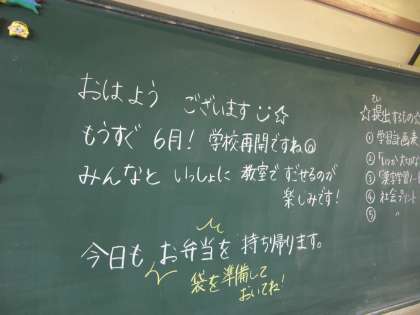 おはよう ございます
もうすぐ 6月! 学校再開ですね
みんなと いっしょに 教室で すごせるのが
楽しみです!
今日も お弁当を 持ち帰ります。
袋を準備して
おいてね!
☆提出するもの☆
① 学習計画表
②
③
④ 社会プリント
⑤ 〃